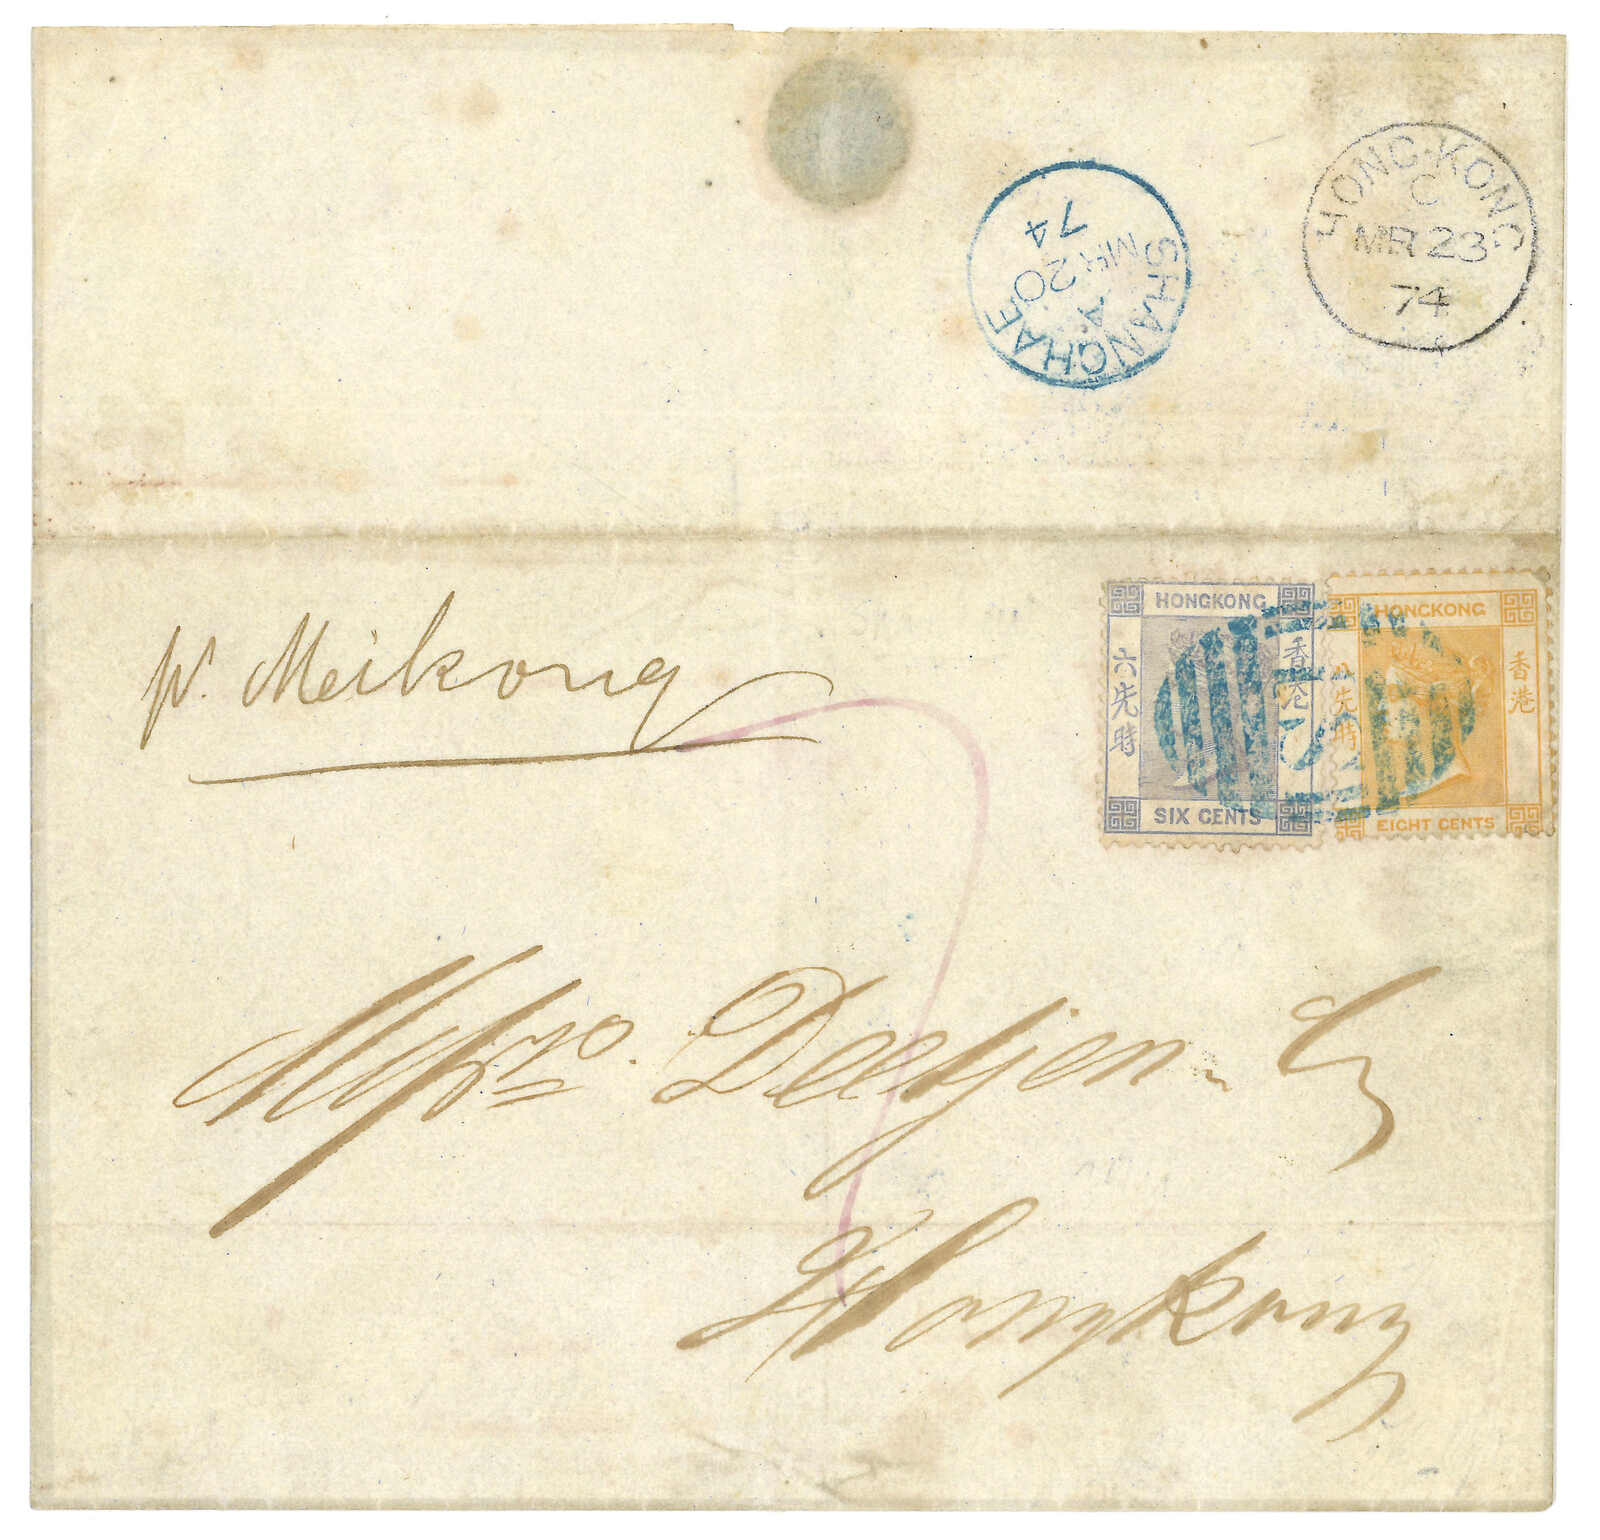 HONG-KONG
C
MR 23
74
SHANGHAE
A
MR 20
74
HONGKONG
香港
六先時
SIX CENTS
HONGKONG
香港
八先時
EIGHT CENTS
pr. Meikong
Messrs. Deetjen & Co
Hongkong